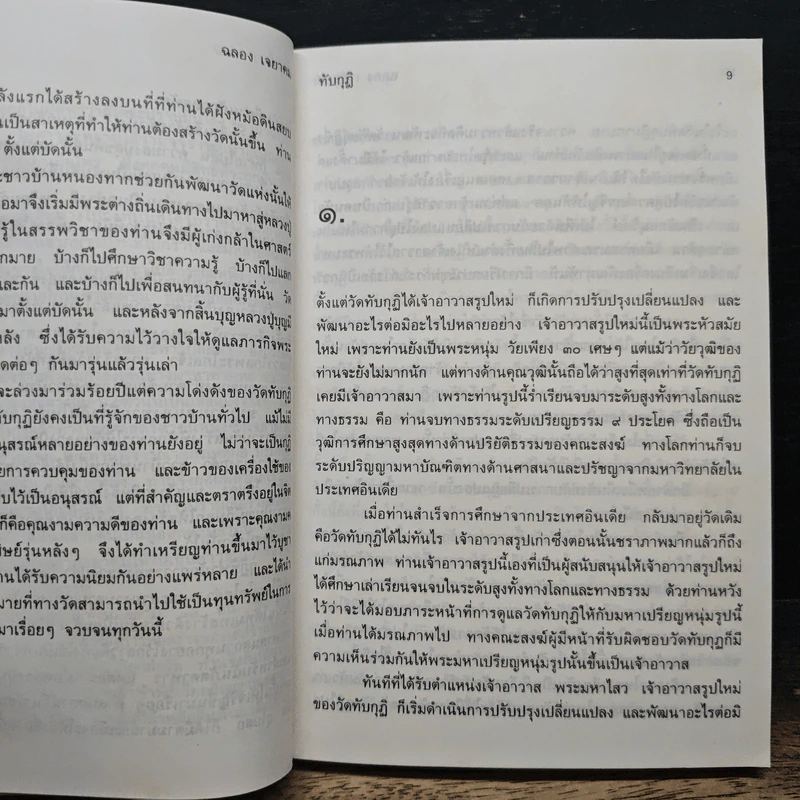 ฉลอง เจยาคม
ลังแรกได้สร้างลงบนที่ที่ท่านได้ฝังหม้อดินสยบ
นเป็นสาเหตุที่ทำให้ท่านต้องสร้างวัดนั้นขึ้น ท่าน
ตั้งแต่บัดนั้น
ะชาวบ้านหนองทากช่วยกันพัฒนาวัดแห่งนั้นให้
อมาจึงเริ่มมีพระต่างถิ่นเดินทางไปมาหาสู่หลวงปู่
รู้ในสรรพวิชาของท่านจึงมีผู้เก่งกล้าในศาสตร์
กมาย บ้างก็ไปศึกษาวิชาความรู้ บ้างก็ไปแลก
และกัน และบ้างก็ไปเพื่อสนทนากับผู้รู้ที่นั่น วัด
มาตั้งแต่บัดนั้น และหลังจากสิ้นบุญหลวงปู่บุญมี
หลัง ซึ่งได้รับความไว้วางใจให้ดูแลภารกิจพระ
ดต่อๆ กันมารุ่นแล้วรุ่นเล่า
จะล่วงมาร่วมร้อยปีแต่ความโด่งดังของวัดทับกุฏิ
ทับกุฏิยังคงเป็นที่รู้จักของชาวบ้านทั่วไป แม้ไม่มี
นุสรณ์หลายอย่างของท่านยังอยู่ ไม่ว่าจะเป็นกุฏิ
ยการควบคุมของท่าน และข้าวของเครื่องใช้ของ
บไว้เป็นอนุสรณ์ แต่ที่สำคัญและตราตรึงอยู่ในจิต
ก็คือคุณงามความดีของท่าน และเพราะคุณงาม
ศิษย์รุ่นหลังๆ จึงได้ทำเหรียญท่านขึ้นมาไว้บูชา
านได้รับความนิยมกันอย่างแพร่หลาย และได้นำ
มายที่ทางวัดสามารถนำไปใช้เป็นทุนทรัพย์ในการ
มาเรื่อยๆ จวบจนทุกวันนี้
ทับกุฏิ 9
๑.
ตั้งแต่วัดทับกุฏิได้เจ้าอาวาสรูปใหม่ ก็เกิดการปรับปรุงเปลี่ยนแปลง และ
พัฒนาอะไรต่อมิอะไรไปหลายอย่าง เจ้าอาวาสรูปใหม่นี้เป็นพระหัวสมัย
ใหม่ เพราะท่านยังเป็นพระหนุ่ม วัยเพียง ๓๐ เศษๆ แต่แม้ว่าวัยวุฒิของ
ท่านจะยังไม่มากนัก แต่ทางด้านคุณวุฒินั้นถือได้ว่าสูงที่สุดเท่าที่วัดทับกุฏิ
เคยมีเจ้าอาวาสมา เพราะท่านรูปนี้ร่ำเรียนจบมาระดับสูงทั้งทางโลกและ
ทางธรรม คือ ท่านจบทางธรรมระดับเปรียญธรรม ๙ ประโยค ซึ่งถือเป็น
วุฒิการศึกษาสูงสุดทางด้านปริยัติธรรมของคณะสงฆ์ ทางโลกท่านก็จบ
ระดับปริญญามหาบัณฑิตทางด้านศาสนาและปรัชญาจากมหาวิทยาลัยใน
ประเทศอินเดีย
เมื่อท่านสำเร็จการศึกษาจากประเทศอินเดีย กลับมาอยู่วัดเดิม
คือวัดทับกุฏิได้ไม่ทันไร เจ้าอาวาสรูปเก่าซึ่งตอนนั้นชราภาพมากแล้วก็ถึง
แก่มรณภาพ ท่านเจ้าอาวาสรูปนี้เองที่เป็นผู้สนับสนุนให้เจ้าอาวาสรูปใหม่
ได้ศึกษาเล่าเรียนจนจบในระดับสูงทั้งทางโลกและทางธรรม ด้วยท่านหวัง
ไว้ว่าจะได้มอบภาระหน้าที่การดูแลวัดทับกุฏิให้กับมหาเปรียญหนุ่มรูปนี้
เมื่อท่านได้มรณภาพไป ทางคณะสงฆ์ผู้มีหน้าที่รับผิดชอบวัดทับกุฏก็มี
ความเห็นร่วมกันให้พระมหาเปรียญหนุ่มรูปนั้นขึ้นเป็นเจ้าอาวาส
ทันทีที่ได้รับตำแหน่งเจ้าอาวาส พระมหาไสว เจ้าอาวาสรูปใหม่
ของวัดทับกุฏิ ก็เริ่มดำเนินการปรับปรุงเปลี่ยนแปลง และพัฒนาอะไรต่อมิ